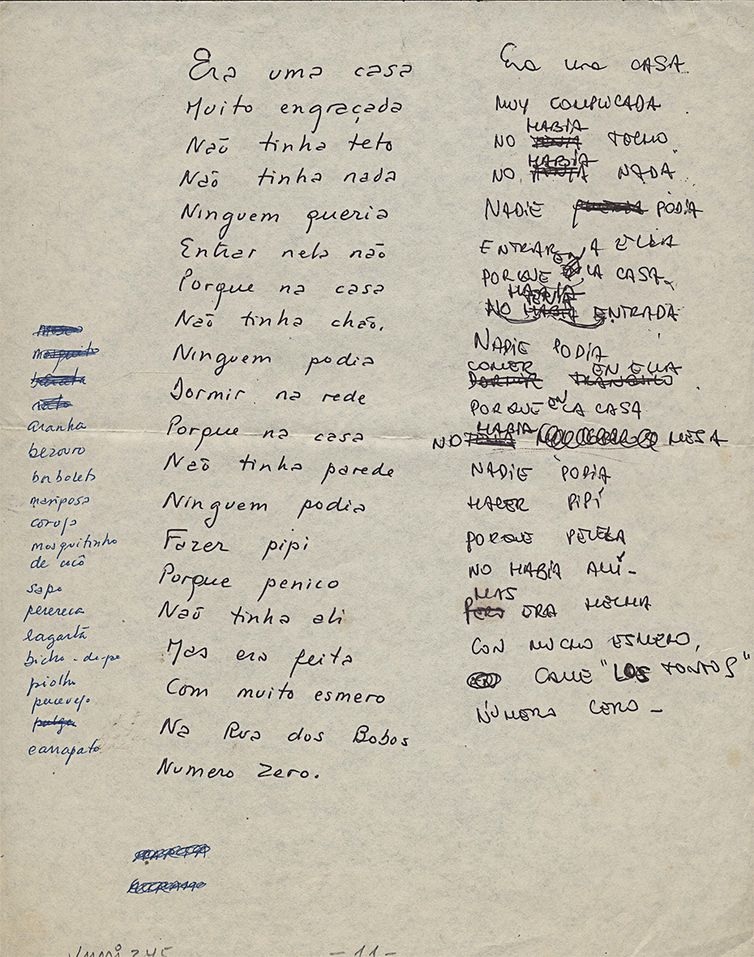 Era uma casa
Muito engraçada
Não tinha teto
Não tinha nada
Ninguem queria
Entrar nela não
Porque na casa
Não tinha chão.
Ninguem podia
Dormir na rede
Porque na casa
Não tinha parede
Ninguem podia
Fazer pipi
Porque penico
Não tinha ali
Mas era feita
Com muito esmero
Na Rua dos Bobos
Numero Zero.
Era una CASA
MUY COMPLICADA
HABIA
NO TECHO
HABIA
NO NADA
NADIE PODIA
ENTRAR A ELLA
EN
PORQUE LA CASA
NO ENTRADA
NADIE PODIA
COMER EN ELLA
DORMIR
PORQUE EN LA CASA
HABIA
NO MESA
NADIE PODIA
HACER PIPÍ
PORQUE
NO HABIA ALLÍ-
MAS
PERO ERA HECHA
CON MUCHO ESMERO,
CALLE "LOS TONTOS"
NÚMERO CERO -
mosquito
rato
aranha
bezouro
borboleta
mariposa
coruja
mosquitinho
de cocô
sapo
perereca
lagarta
bicho-de-pe
piolho
percevejo
pulga
carrapato
-11-